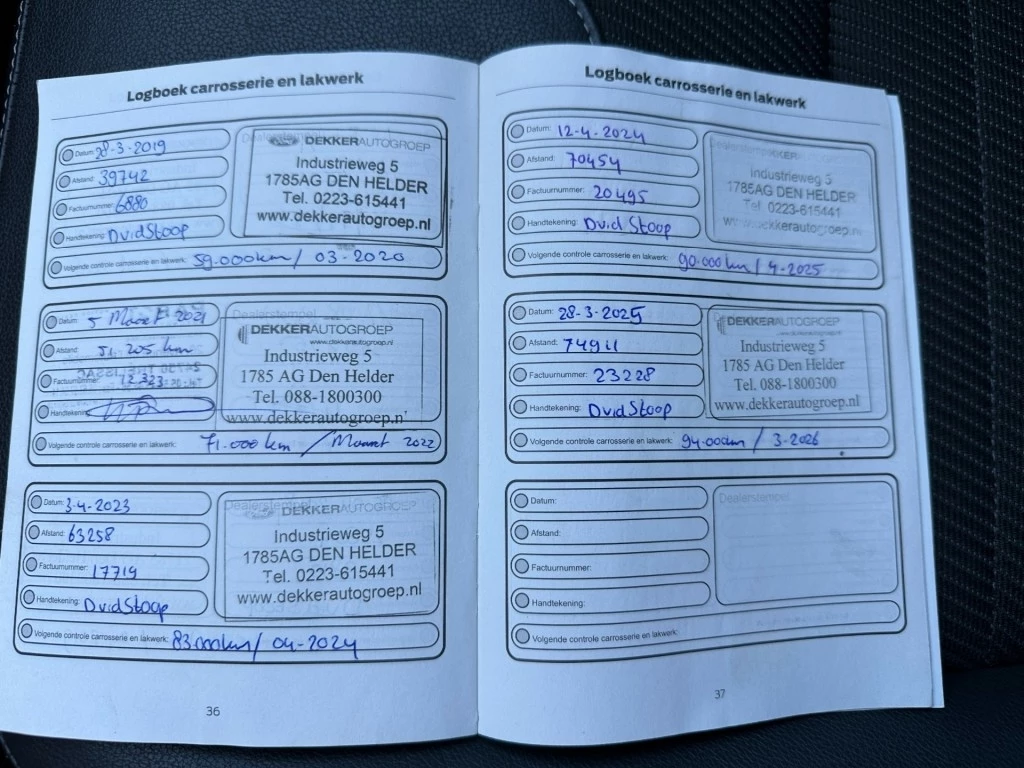 Logboek carrosserie en lakwerk
Datum: 28-3-2019
Afstand: 39742
Factuurnummer: 6880
Handtekening: DvidStoop
DEKKERAUTOGROEP
Industrieweg 5
1785AG DEN HELDER
Tel. 0223-615441
www.dekkerautogroep.nl
Volgende controle carrosserie en lakwerk: 59.000km / 03-2020
Datum: 5 Maart 2021
Afstand: 51.205 km
Factuurnummer: 12323
Handtekening:
DEKKERAUTOGROEP
www.dekkerautogroep.nl
Industrieweg 5
1785 AG Den Helder
Tel. 088-1800300
www.dekkerautogroep.nl
Volgende controle carrosserie en lakwerk: 71.000 km / Maart 2022
Datum: 3-4-2023
Afstand: 63258
Factuurnummer: 17719
Handtekening: DvidStoop
Dealerstempel
DEKKERAUTOGROEP
Industrieweg 5
1785AG DEN HELDER
Tel. 0223-615441
www.dekkerautogroep.nl
Volgende controle carrosserie en lakwerk: 83.000km / 04-2024
36
Logboek carrosserie en lakwerk
Datum: 12-4-2024
Afstand: 70454
Factuurnummer: 20495
Handtekening: DvidStoop
DEKKER
Industrieweg 5
1785AG DEN HELDER
Tel 0223-615441
www.dekkerautogroep.nl
Volgende controle carrosserie en lakwerk: 90.000km / 4-2025
Datum: 28-3-2025
Afstand: 74911
Factuurnummer: 23228
Handtekening: DvidStoop
DEKKERAUTOGROEP
Industrieweg 5
1785 AG Den Helder
Tel. 088-1800300
www.dekkerautogroep.nl
Volgende controle carrosserie en lakwerk: 94.000km / 3-2026
Datum:
Afstand:
Factuurnummer:
Handtekening:
Dealerstempel
Volgende controle carrosserie en lakwerk:
37